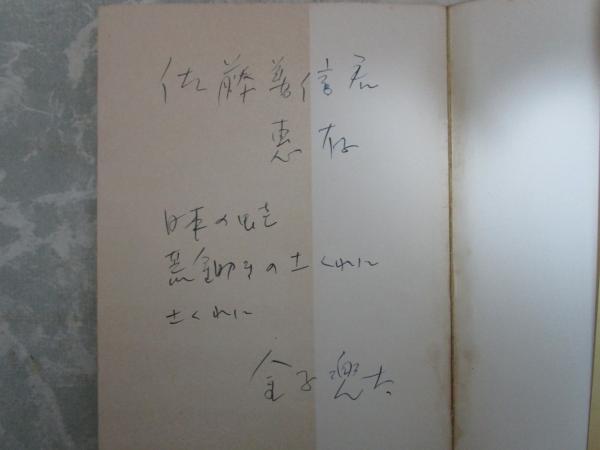 佐藤善信君
恵存
日本の
荒鋤きの土くれに
土くれに
金子兜太